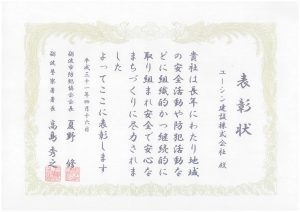 表彰状
ユーシン建設株式会社 殿
貴社は長年にわたり地域
の安全活動や防犯活動な
どに組織的かつ継続的に
取り組まれ安全で安心な
まちづくりに尽力されま
した
よってここに表彰します
平成三十一年四月十六日
砺波市防犯協会会長
夏野 修
砺波警察署署長
高島 秀之